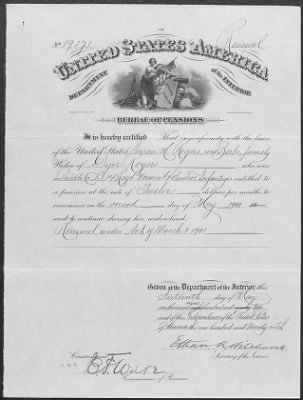 Renewal
UNITED STATES of AMERICA
DEPARTMENT of the INTERIOR.
BUREAU OF PENSIONS
It is hereby certified That in conformity with the laws
of the United States Rogers, now formerly
Widow of Dyer Rogers who was
a entitled to
a pension at the rate of Twelve dollars per month, to
commence on the second day of May 1901
and to continue during her widowhood.
Renewal under Act of March 3 1901
Given at the Department of the Interior this
Sixteenth day of May
one thousand nine hundred and one
and of the Independence of the United States
of America the one hundred and twenty-fifth
Ethan A. Hitchcock
Secretary of the Interior
Countersigned
Commissioner of Pensions